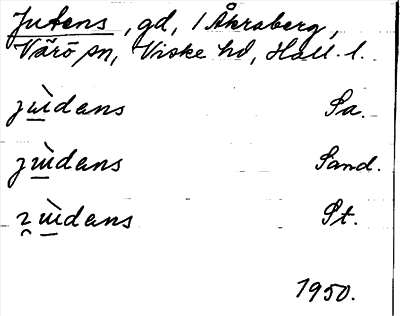 Jutens, gd, 1 Åkraberg,
Värö sn, Viske hd, Hall. l.
jùdens Sa.
jùdans Sand.
St.
1950.